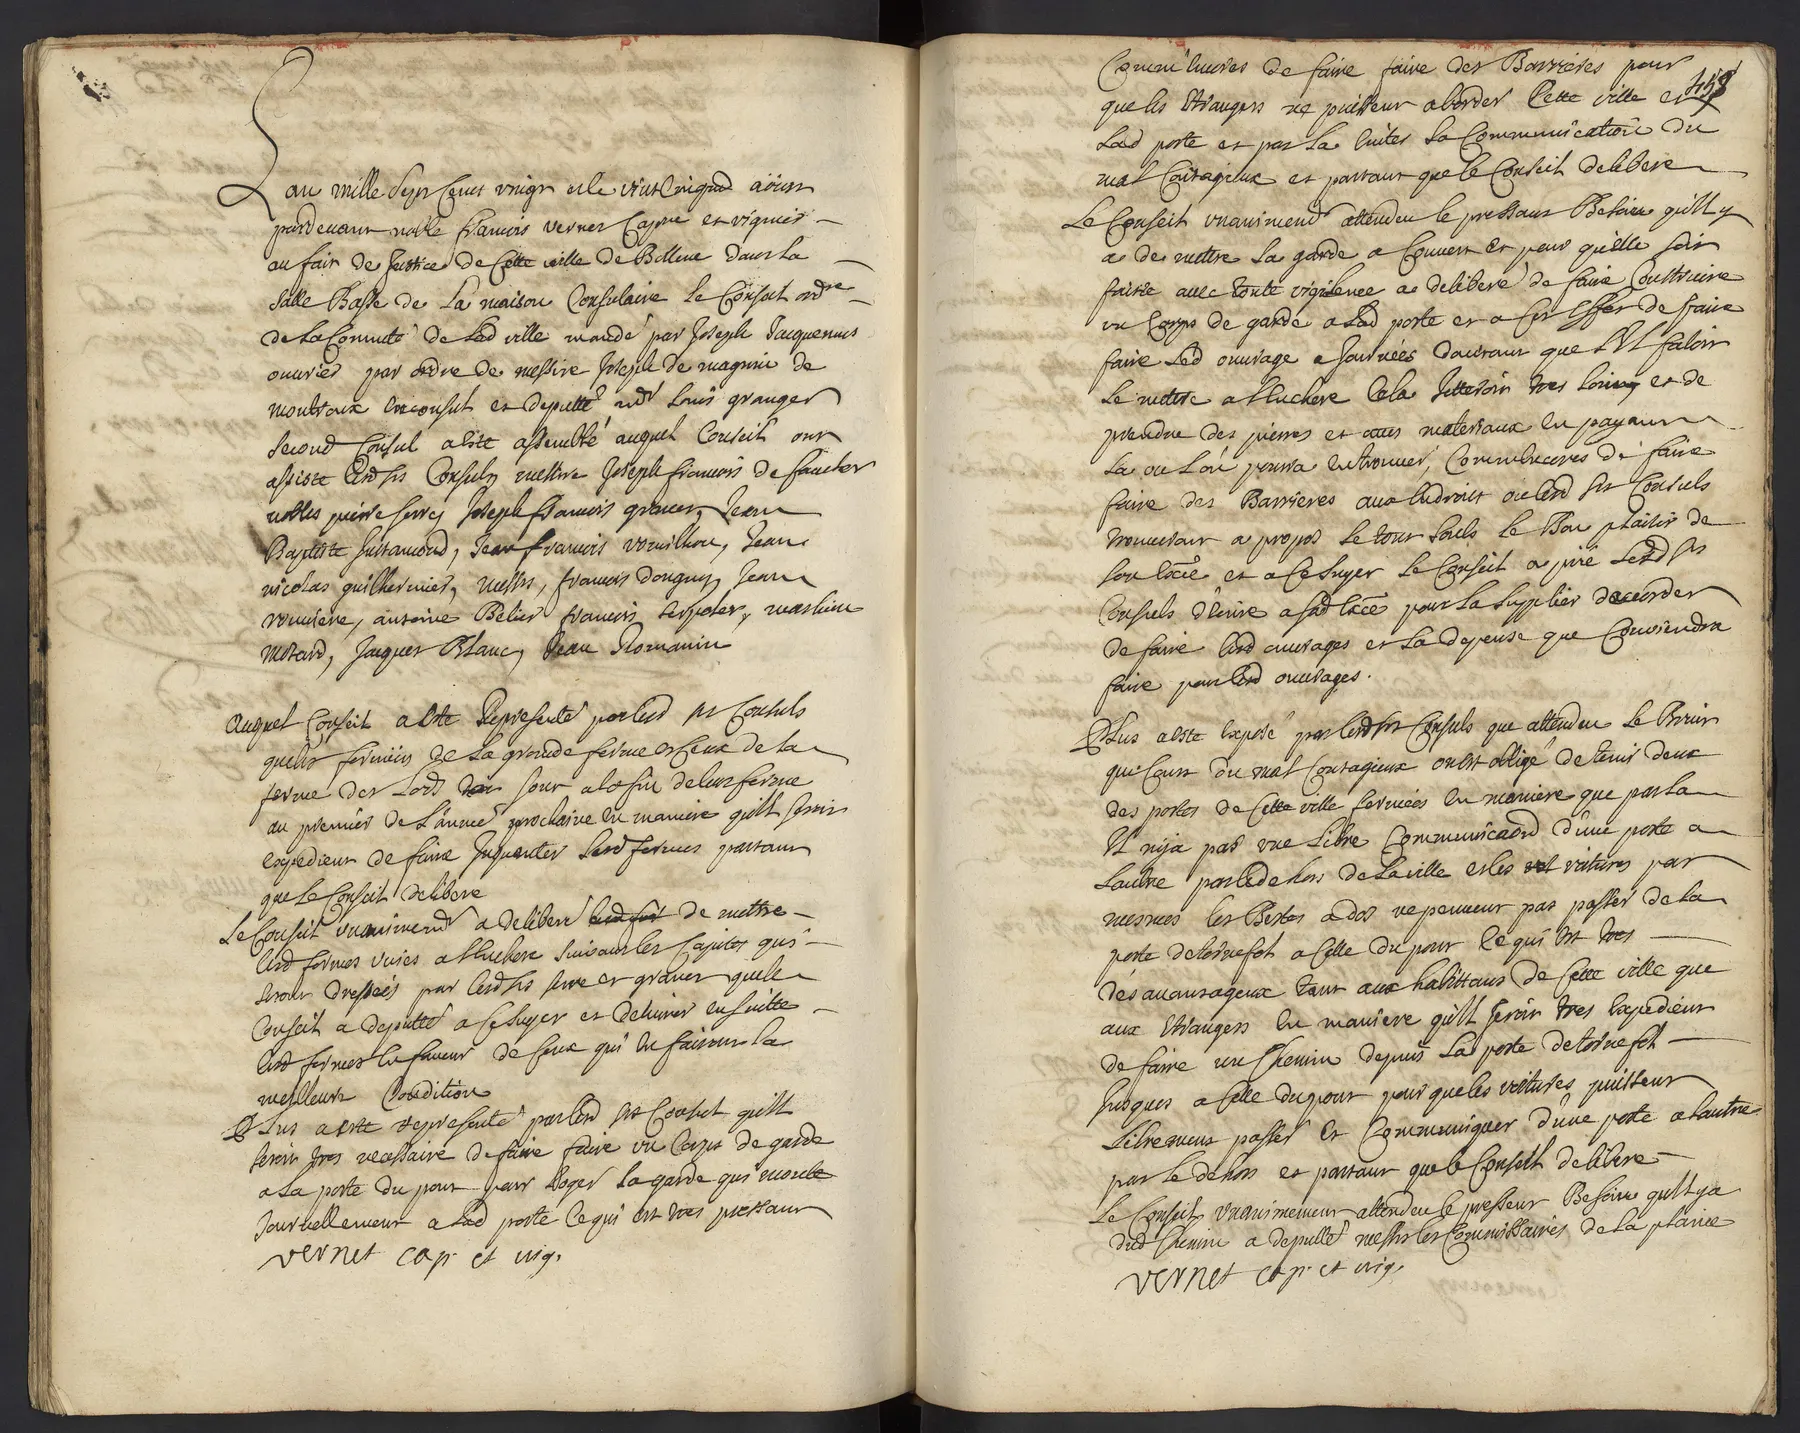 Lan mille sept cents vingt et le vint cinque aoust
pardevant noble francois vernet Capne et viguier
au fait de Justice de Cette ville de Bollene dans la
salle Basse de La maison Consulaire Le Conseil ordre
de La Comnuté de Lad ville mandé par Joseph Jacquemus
ouvrier par ordre de messire Joseph de magnin de
monteaux consul et deputté Louis granger
second Consul a esté assemblé auquel Conseil ont
assisté lesd srs Consuls, messire Joseph francois de faucher
nobles pierre serre, Joseph francois graner, Jean
Baptiste Justamond, Jean francois vomilhou, Jean
nicolas guilhermier, messrs, francois donguy, Jean
rouviere, antoine Belier francois serpolet, mathieu
motard, Jacques Blanc, Jean Romanin
Auquel Conseil a esté Representé par lesd srs Consuls
que les fermiers de La grande ferme et Ceux de la
ferme des Lods sont a la fin de leur ferme
au premier de L'année prochaine en maniere quil seroit
expedient de faire Inquanter Lesd fermes partant
que le Conseil delibere
Le Conseil unanimemt a deliberé de mettre
lesd fermes unies a l'enchere suivant les Capitos qui
seront dressées par lesd srs serre et graner que le
Conseil a deputté a Ce sujet et delivrer ensuitte
lesd fermes en faveur de Ceux qui en fairont la
meilleure Condition
Plus a esté representé par lesd srs Consuls quil
seroit tres necessaire de faire faire un Corps de garde
a La porte du pont pour Loger La garde qui monte
Journellement a Lad porte Ce qui est tres pressant
vernet cap. et vig.
453
Comm'encores de faire faire des Barrieres pour
que les etrangers ne puissent aborder Cette ville et
Lad porte et par La eviter La Communication du
mal Contagieux et partant que le Conseil delibere
Le Conseil unanimemt attendeu le pressant Besoin quil y
a de mettre La garde a Couvert et pour qu'elle soit
faitte avec toute vigilence a deliberé de faire Construire
un Corps de garde a Lad porte et a Cet effet de faire
faire Led ouvrage a Journées dautant que s'il faloit
Le mettre a l'enchere Cela Jetteroit tres loing et de
prendre des pierres et autres materiaux en payant
La ou L'on pourra en trouver, Comm'encores de faire
faire des Barrieres aux endroits ou lesd srs Consuls
trouveront a propos Le tout soubs Le Bon plaisir de
son Excée et a Ce sujet Le Conseil a prié Lesd srs
Consuls d'Ecrire a sad Excée pour La supplier daccorder
de faire lesd ouvrages et La depense que Conviendra
faire pour lesd ouvrages.
Plus a esté exposé par lesd srs Consuls que attendeu Le Bruit
qui Court du mal Contagieux on est obligé de tenir deux
des portes de Cette ville fermées en maniere que par La
Il n'y a pas une Libre Communicaon d'une porte a
Lautre par le dehors de La ville et les voitures par
mesmes les Bestes a dos ne peuvent pas passer de la
porte de tornefol a Celle du pont Ce qui est tres
desavantageux tant aux habittans de Cette ville que
aux etrangers en maniere quil seroit tres expedient
de faire un Chemin depuis La porte de tornefol
Jusques a Celle du pont pour que les voitures puissent
Librement passer et Communiquer d'une porte a Lautre
par Le dehors et partant que le Conseil delibere
Le Conseil unanimement attendeu le pressent Besoin quil y a
dud Chemin a deputté messrs les Commissaires de La plaine
vernet cap. et vig.